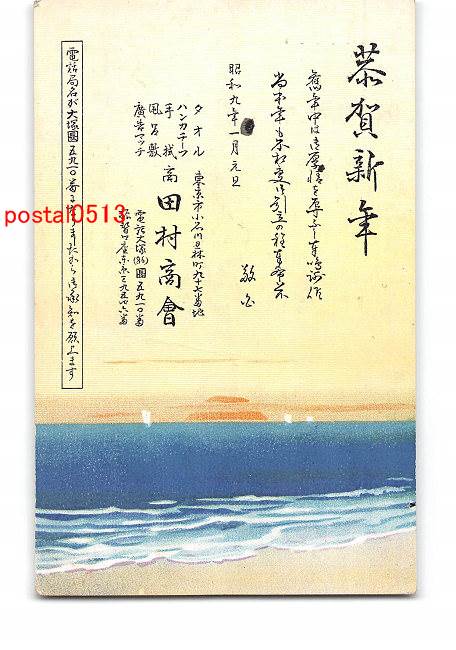 恭賀新年
舊年中は御厚情を辱ふし奉鳴謝候
尚本年も不相変御引立の程奉希候
敬白
昭和九年一月元旦
タオル
ハンカチーフ
手拭
風呂敷
廣告マッチ
商
東京市小石川区林町九十七番地
田村商會
電話大塚(86)園五九一〇番
振替口座東京三九五七六番
電話局名が大塚園五九一〇番に
ましたから御承知を願上ます
postal0513